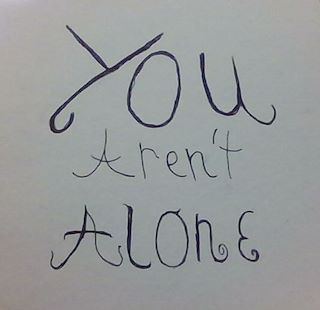 You
Aren't
Alone